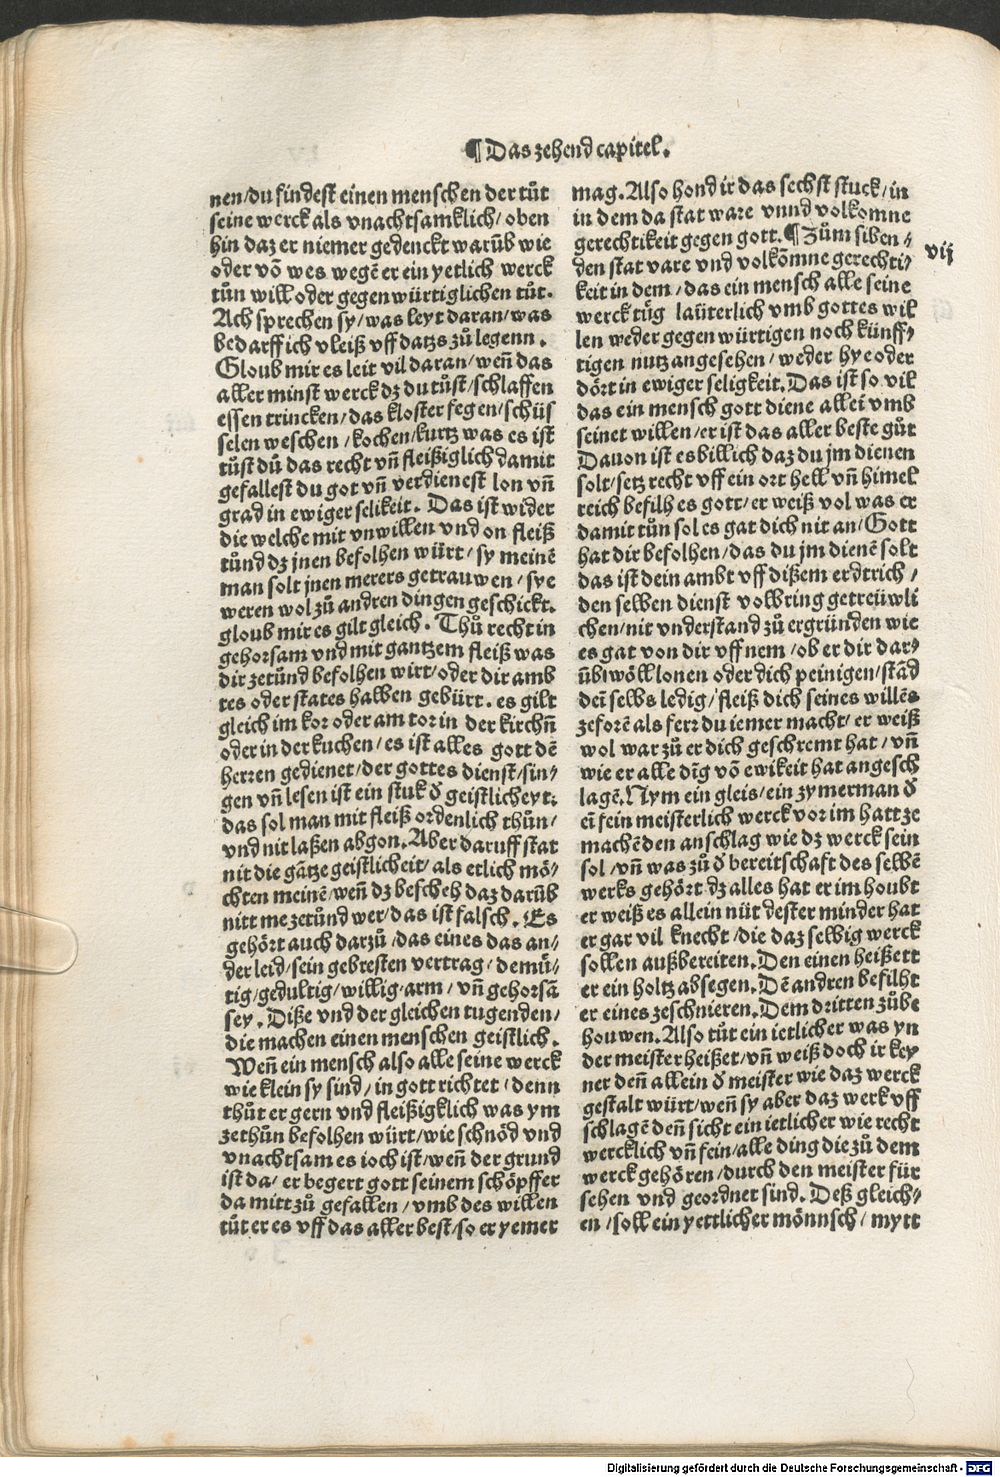 ¶ Das zehend capitel.
nen/du findest einen menschen der tůt
seine werck als vnachtsamklich/oben
hin daz er niemer gedenckt warūb wie
oder vō wes wegē er ein yetlich werck
tůn will oder gegenwürtiglichen tůt.
Ach sprechen sy/was leyt daran/was
bedarff ich vleiß vff datzs zů legenn.
Gloub mir es leit vil daran/wen̄ das
aller minst werck dz du tůst/schlaffen
essen trincken/das kloster fegen/schüs
selen weschen/kochen/kurtz was es ist
tůst dů das recht vn̄ fleißiglich damit
gefallest du got vn̄ verdienest lon vn̄
grad in ewiger selikeit. Das ist wider
die welche mit vnwillen vnd on fleiß
tůnd dz jnen befolhen würt/sy meinē
man solt jnen merers getrauwen/sye
weren wol zů andren dingen geschickt.
gloub mir es gilt gleich. Thů recht in
gehorsam vnd mit gantzem fleiß was
dir zetůnd befolhen wirt/oder dir amb
tes oder states halben gebürt. es gilt
gleich im kor oder am tor in der kirchn̄
oder in der kuchen/es ist alles gott dē
herren gedienet/der gottes dienst/sin⸗
gen vn̄ lesen ist ein stuk d̛ geistlicheyt:
das sol man mit fleiß ordenlich thůn/
vnd nit laßen abgon. Aber daruff stat
nit die gātze geistlicheit/als etlich mö⸗
chten meinē/wen̄ dz bescheh daz darūb
nitt me zetůnd wer/das ist falsch. Es
gehört auch darzů/das eines das an⸗
der leid/sein gebresten vertrag/demü⸗
tig/gedultig/willig/arm/vn̄ gehorsā
sey. Diße vnd der gleichen tugenden/
die machen einen menschen geistlich.
Wen̄ ein mensch also alle seine werck
wie klein sy sind/in gott richtet/denn
thůt er gern vnd fleißigklich was ym
zethůn befolhen würt/wie schnöd vnd
vnachtsam es ioch ist/wen̄ der grund
ist da/er begert gott seinem schöpffer
da mitt zů gefallen/vmb des willen
tůt er es vff das aller best/so er yemer
mag. Also hond ir das sechst stuck/in
in dem da stat ware vnnd volkomne
gerechtikeit gegen gott. ¶ Zům siben⸗
vij
den stat vare vnd volkōmne gerechti⸗
keit in dem/das ein mensch alle seine
werck tůg laüterlich vmb gottes wil
len weder gegenwürtigen noch künff⸗
tigen nutz angesehen/weder hye oder
dört in ewiger seligkeit. Das ist so vil
das ein mensch gott diene alleī vmb
seinet willen/er ist das aller beste gůt
Dauon ist es billich daz du jm dienen
solt/setz recht vff ein ort hell vn̄ himel
reich befilh es gott/er weiß vol was er
damit tůn sol es gat dich nit an/Gott
hat dir befolhen/das du jm dienē solt
das ist dein ambt vff dißem erdtrich/
den selben dienst volbring getreüwli
chen/nit vnderstand zů ergründen wie
es gat von dir vffnem/ob er dir dar⸗
ūb wöll lonen oder dich peinigen/stād
dei̅ selbs ledig/fleiß dich seines willēs
zeforē als ferr du iemer macht/er weiß
wol war zů er dich geschremt hat/vn̄
wie er alle dīg vō ewikeit hat angesch
lagē. Nym ein gleis/ein zymerman d̛
eī fein meisterlich werck vor im hatt ze
machē den anschlag wie dz werck sein
sol/vn̄ was zů d̛ bereitschaft des selbē
werks gehört dz alles hat er im houbt
er weiß es allein nüt dester minder hat
er gar vil knecht/die daz selbig werck
sollen außbereiten. Den einen heißett
er ein holtz absegen. Dē andren befilht
er eines zeschnieren. Dem dritten zůbe
houwen. Also tůt ein ietlicher was yn
der meister heißet/vn̄ weiß doch ir key
ner den̄ allein d̛ meister wie daz werck
gestalt würt/wen̄ sy aber daz werk vff
schlagē den̄ sicht ein ietlicher wie recht
wercklich vn̄ fein/alle ding die zů dem
werck gehören/durch den meister für
sehen vnd geordnet sind. Deß gleich⸗
en/soll ein yettlicher mönnsch/mytt
Digitalisierung gefördert durch die Deutsche Forschungsgemeinschaft - DFG